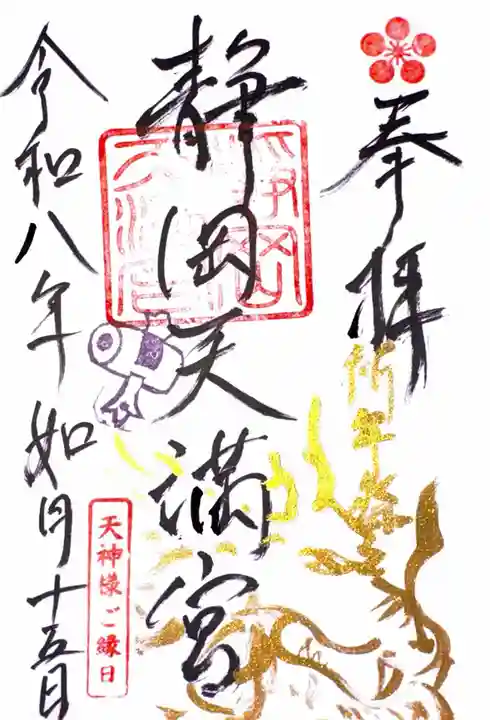 奉拝
祈年祭
静岡天満宮
令和八年如月十五日
天神様ご縁日